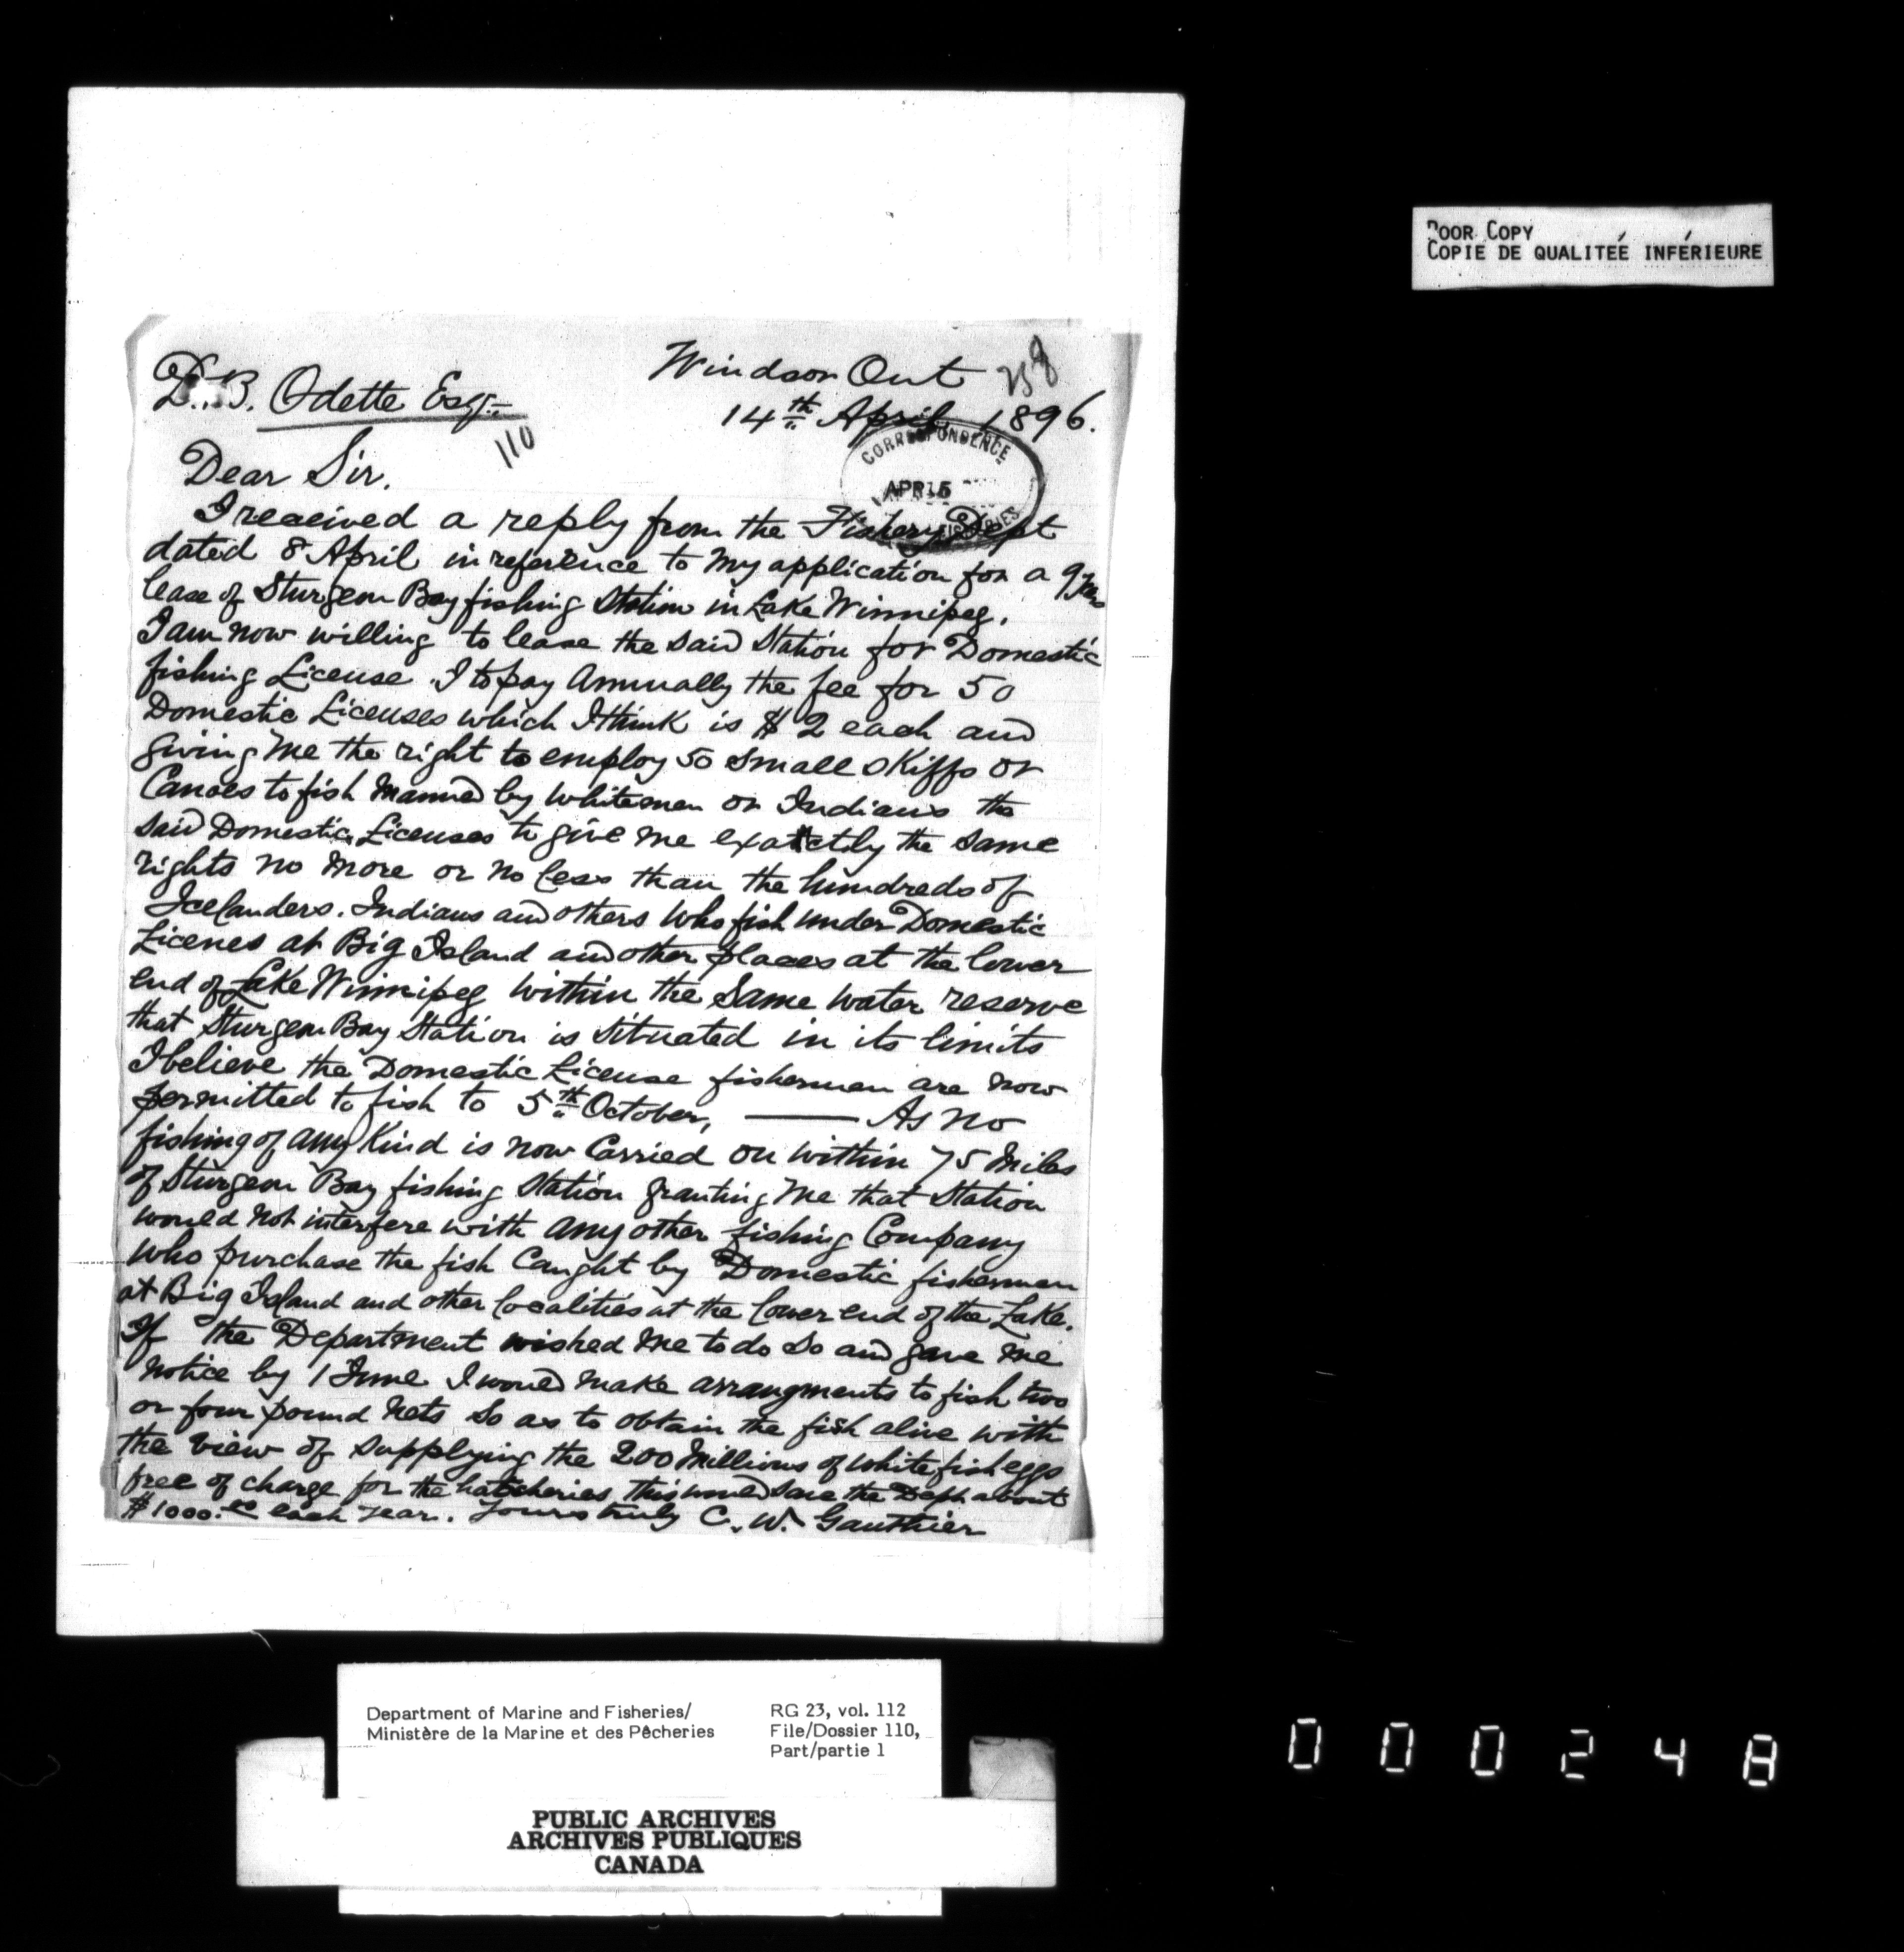 POOR COPY
COPIE DE QUALITEÉ INFÉRIEURE
Windsor Ont
238
D. B. Odette Esqr.
14th April 1896.
110
CORRESPONDENCE
APR 15
FISHERIES
Dear Sir.
I received a reply from the Fishery Dept
dated 8 April in reference to my application for a 9 years
lease of Sturgeon Bay fishing Station in Lake Winnipeg.
I am now willing to lease the said Station for Domestic
fishing License. I to pay Annually the fee for 50
Domestic Licenses which I think is $2 each and
giving me the right to employ 50 small skiffs or
Canoes to fish manned by whitemen or Indians the
said Domestic Licenses to give me exatctly the same
rights no more or no less than the hundreds of
Icelanders. Indians and others who fish under Domestic
Licenes at Big Island and other places at the lower
end of Lake Winnipeg within the same water reserve
that Sturgeon Bay Station is situated in its limits
I believe the Domestic License fishermen are now
permitted to fish to 5th October, — As no
fishing of any Kind is now Carried on within 75 miles
of Sturgeon Bay fishing Station granting me that Station
would not interfere with any other fishing Company
who purchase the fish Caught by Domestic fishermen
at Big Island and other localities at the lower end of the Lake.
If the Department wished me to do so and gave me
notice by 1 June I would make arrangments to fish two
or four pound nets so as to obtain the fish alive with
the view of supplying the 200 Millions of whitefish eggs
free of charge for the hatcheries this would save the Dept about
$1000.00 each year. Yours truly C. W. Gauthier
Department of Marine and Fisheries/
Ministère de la Marine et des Pêcheries
RG 23, vol. 112
File/Dossier 110,
Part/partie 1
PUBLIC ARCHIVES
ARCHIVES PUBLIQUES
CANADA
000248